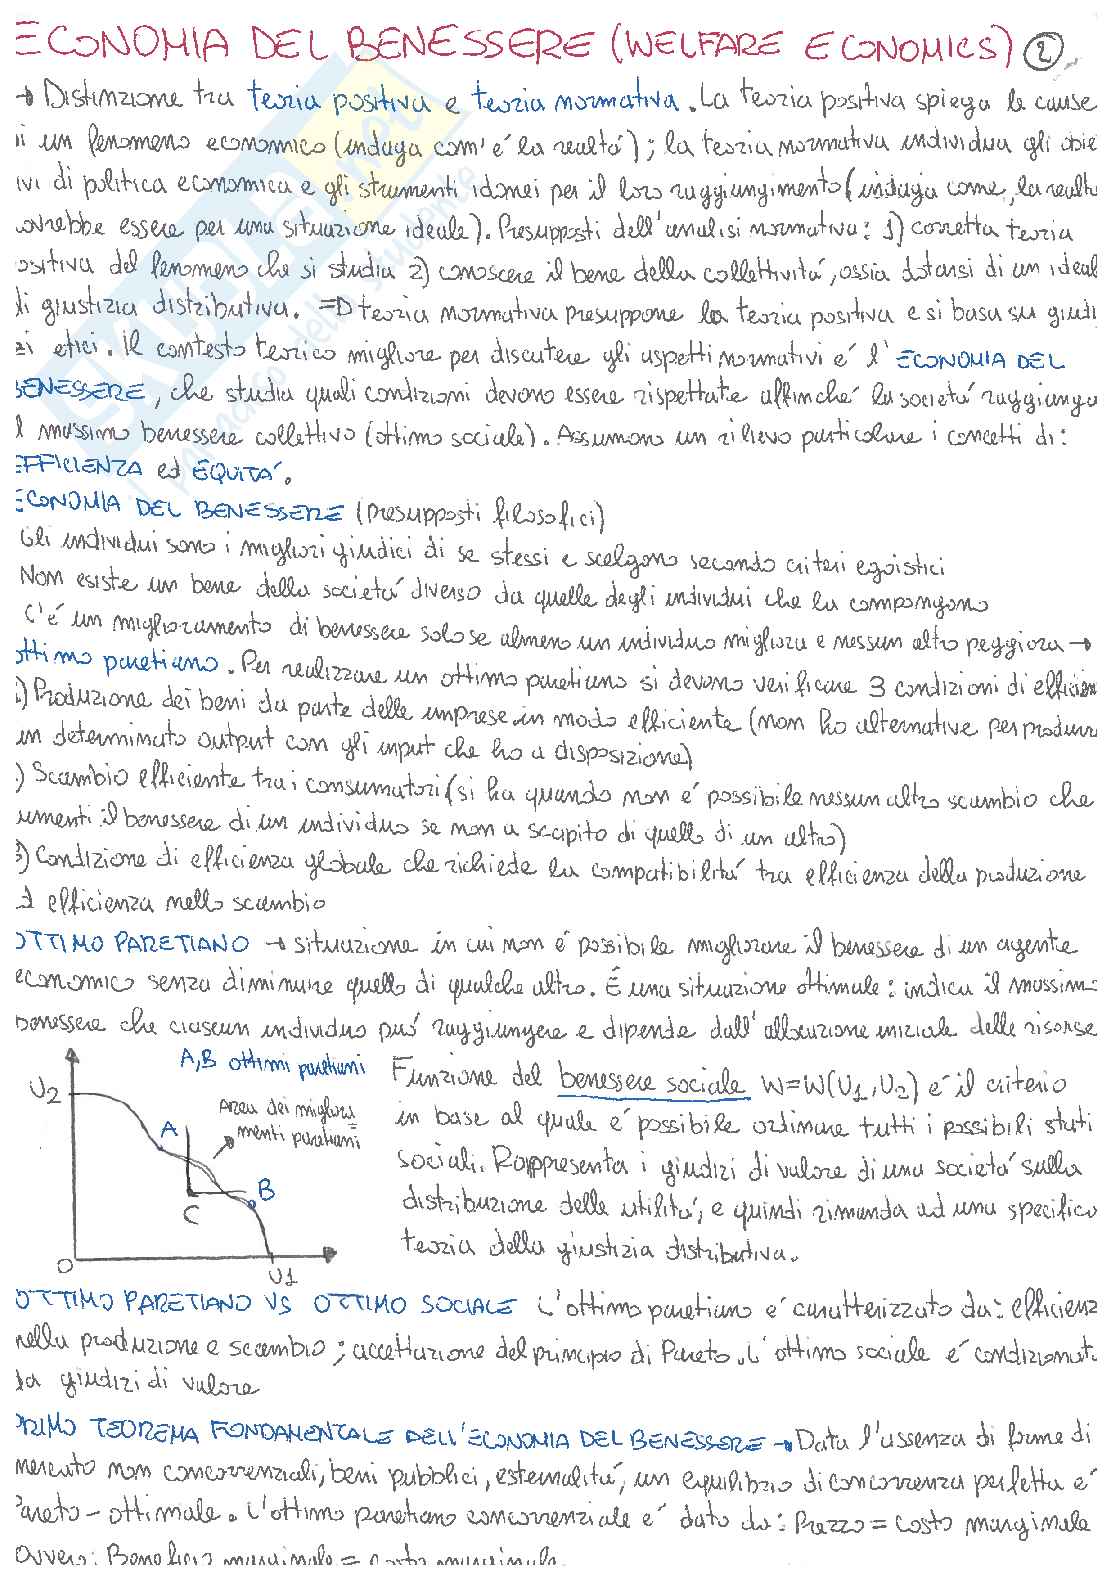 ECONOMIA DEL BENESSERE (WELFARE ECONOMICS) 2
→ Distinzione tra teoria positiva e teoria normativa. La teoria positiva spiega le cause
i un fenomeno economico (indaga com'é la realtá); la teoria normativa individua gli obie
ivi di politica economica e gli strumenti idonei per il loro raggiungimento (indaga come, la realt
ovrebbe essere per una situazione ideale). Presupposti dell'analisi normativa: 1) corretta teoria
ositiva del fenomeno che si studia 2) conoscere il bene della collettivitá, ossia dotarsi di un ideal
di giustizia distributiva. => teoria normativa presuppone la teoria positiva e si basa su giudi
zi etici. Il contesto teorico migliore per discutere gli aspetti normativi é l'ECONOMIA DEL
BENESSERE, che studia quali condizioni devono essere rispettate affinché la societá raggiunga
l massimo benessere collettivo (ottimo sociale). Assumono un rilievo particolare i concetti di:
EFFICIENZA ed EQUITÁ.
ECONOMIA DEL BENESSERE (presupposti filosofici)
Gli individui sono i migliori giudici di se stessi e scelgono secondo criteri egoistici
Non esiste un bene della societá diverso da quelle degli individui che la compongono
C'é un miglioramento di benessere solo se almeno un individuo migliora e nessun altro peggiora →
ottimo paretiano. Per realizzare un ottimo paretiano si devono verificare 3 condizioni di efficien
1) Produzione dei beni da parte delle imprese in modo efficiente (non ho alternative per produrr
un determinato output con gli input che ho a disposizione)
) Scambio efficiente tra i consumatori (si ha quando non é possibile nessun altro scambio che
umenti il benessere di un individuo se non a scapito di quello di un altro)
3) Condizione di efficienza globale che richiede la compatibilitá tra efficienza della produzione
d efficienza nello scambio
OTTIMO PARETIANO → situazione in cui non é possibile migliorare il benessere di un agente
economico senza diminuire quello di qualche altro. É una situazione ottimale: indica il massim
benessere che ciascun individuo puó raggiungere e dipende dall'allocazione iniziale delle risorse
A,B ottimi paretiani
U2
Area dei migliora
menti paretiani
A
B
C
O
U1
Funzione del benessere sociale W=W(U1,U2) é il criterio
in base al quale é possibile ordinare tutti i possibili stati
sociali. Rappresenta i giudizi di valore di una societá sulla
distribuzione delle utilitá, e quindi rimanda ad una specifica
teoria della giustizia distributiva.
OTTIMO PARETIANO VS OTTIMO SOCIALE L'ottimo paretiano é caratterizzato da: efficienz
nella produzione e scambio; accettazione del principio di Pareto. L'ottimo sociale é condizionat
da giudizi di valore
PRIMO TEOREMA FONDAMENTALE DELL'ECONOMIA DEL BENESSERE → Data l'assenza di forme di
mercato non concorrenziali, beni pubblici, esternalitá, un equilibrio di concorrenza perfetta é
Pareto-ottimale. L'ottimo paretiano concorrenziale é dato da: Prezzo = costo marginale
Ovvero: Beneficio marginale = costo marginale.